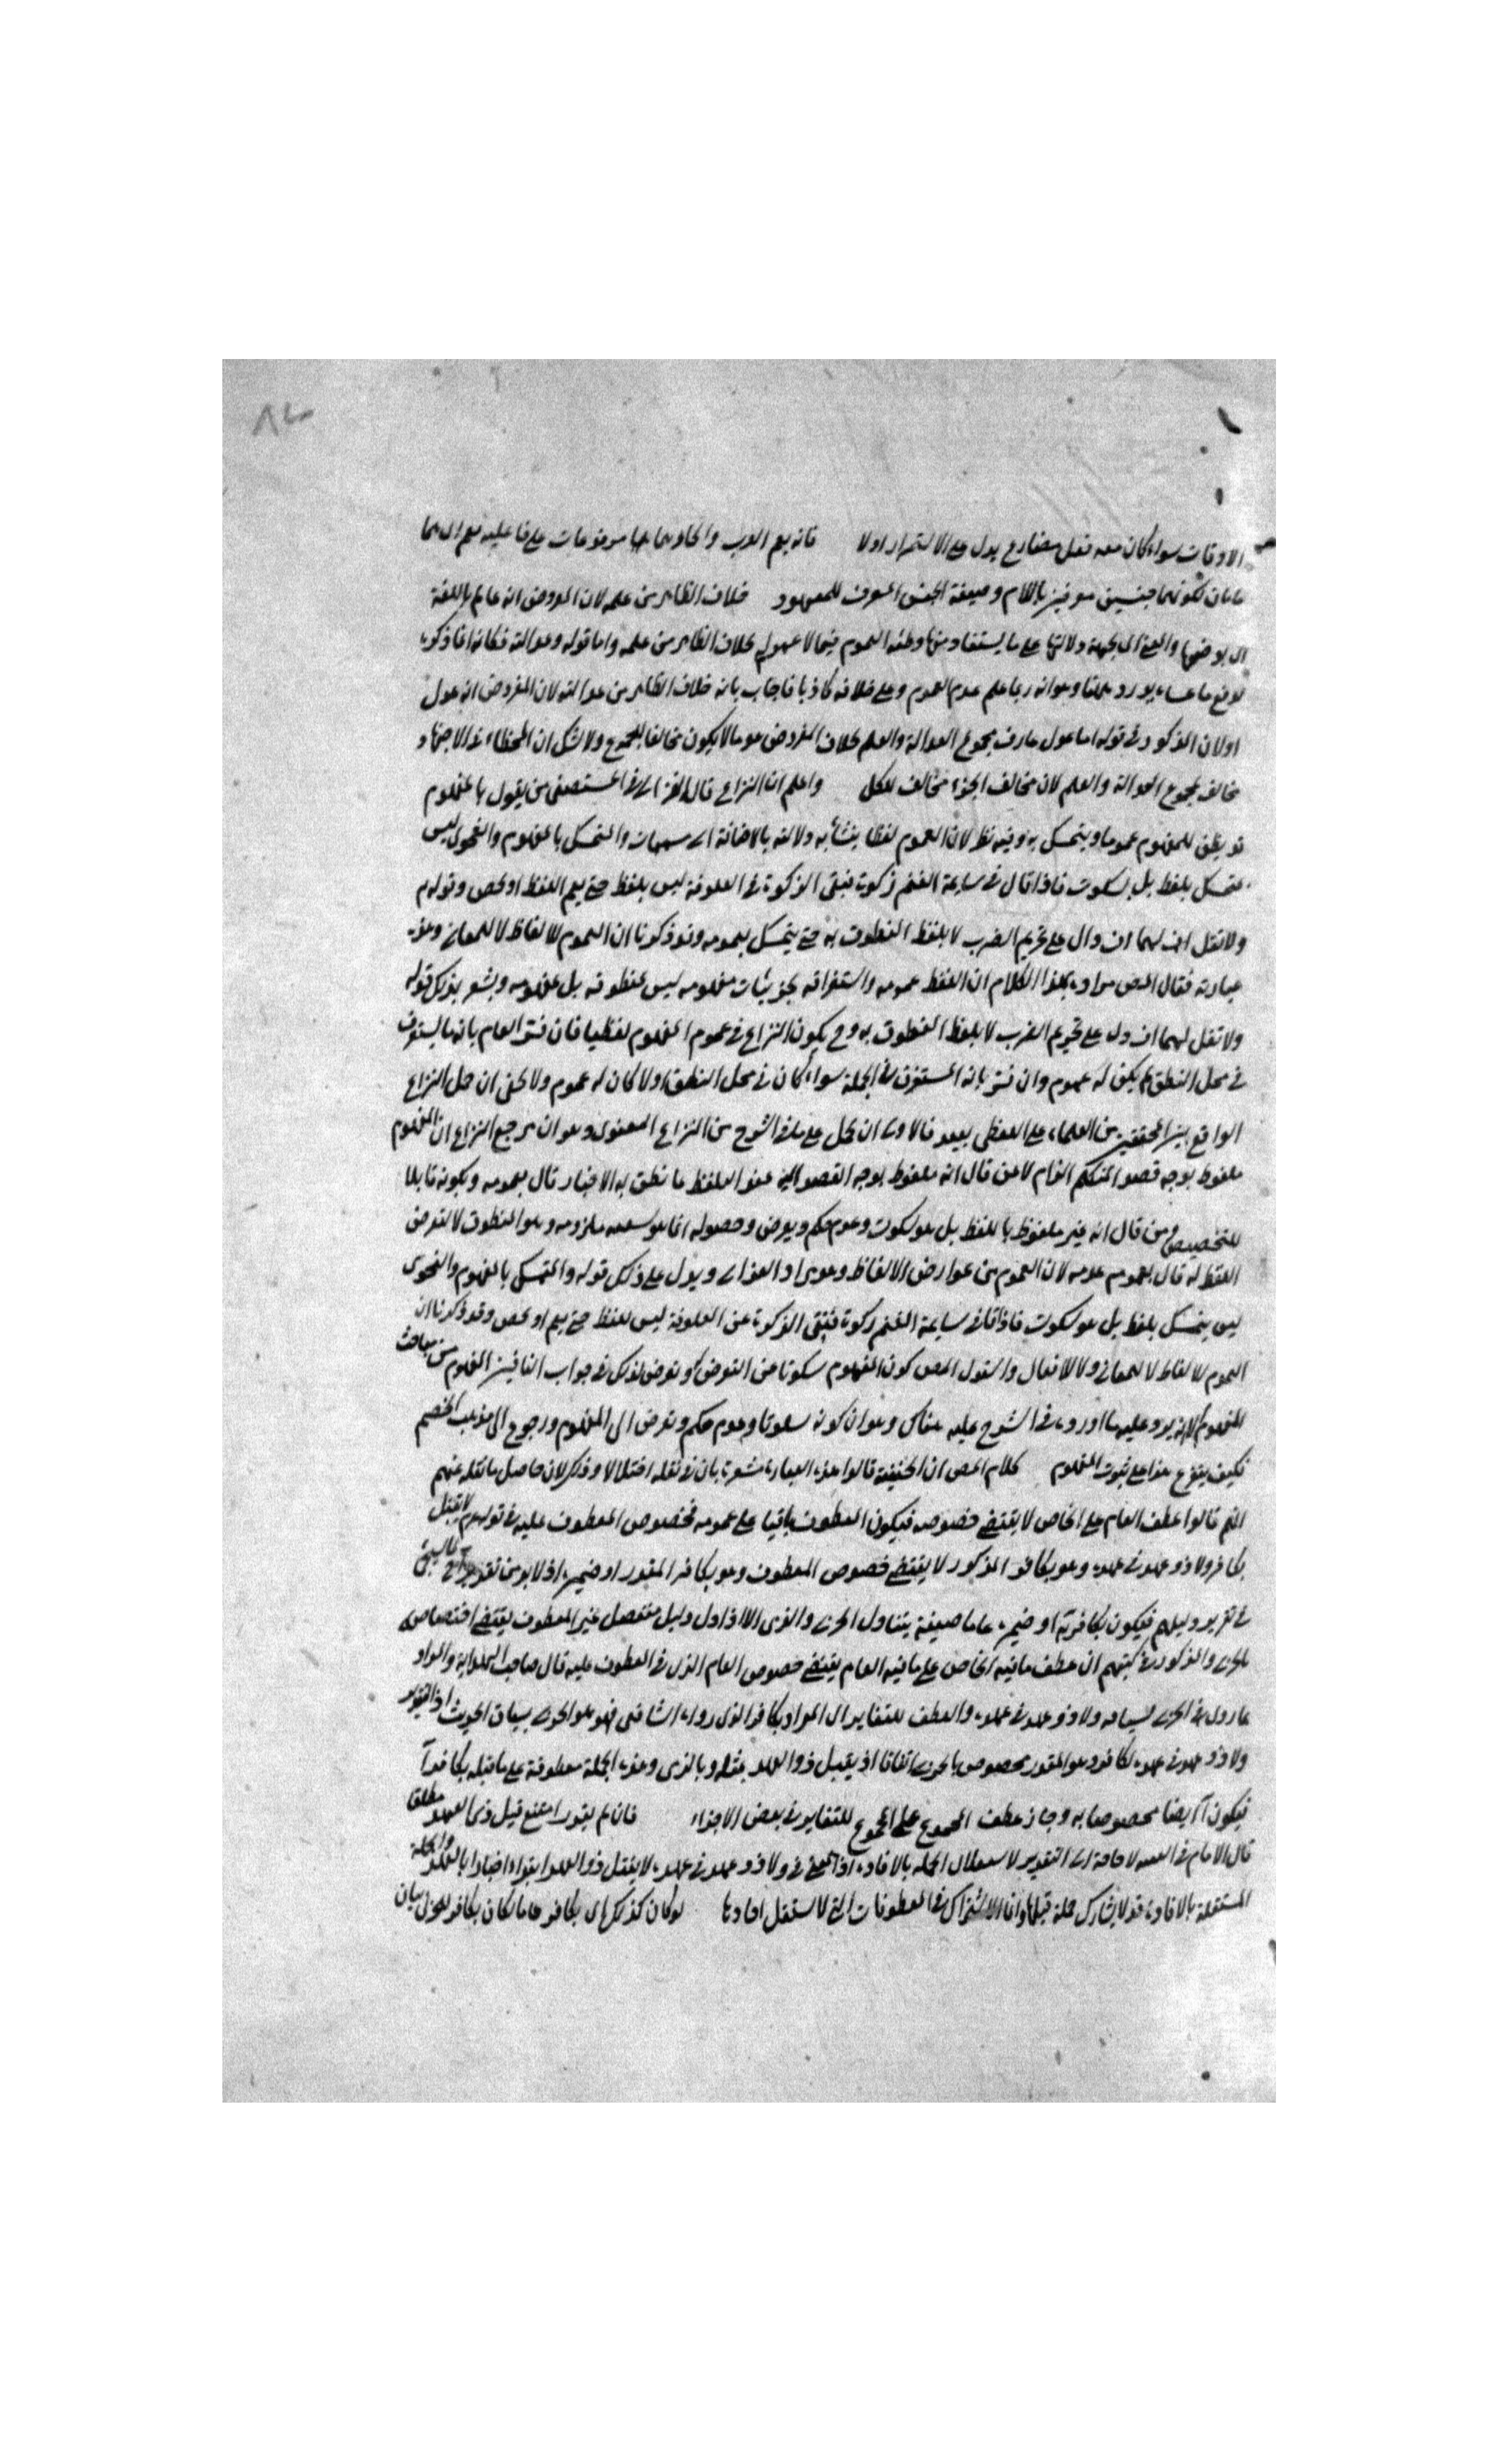 الاوقات سواء كان معه فعل مضارع يدل على الاستمرار اولا فانه يعم
لكونهما جنسين معرفين باللام وصيغة الجنس المعرف للمعهود خلاف الظاهر من علمه لان المفروض انه عالم باللغة
دلالتها على ما يستفاد منها وظنه العموم فيما لا عموم له خلاف الظاهر من علمه واما قوله وعدالته فكانه انما ذكره
لدفع ما عساه يورد وهو انه ربما علم عدم العموم وعلى خلافه كاذبا فاجاب بانه خلاف الظاهر من عدالته لان المفروض انه عدل
اولان المذكور في قوله اما عدل عارف مجموع العدالة والعلم خلاف المفروض هو ما لا يكون مخالفا للمجموع ولا شك ان الخطاء في الاجتهاد
مخالف لمجموع العدالة والعلم لان مخالف الجزء مخالف للكل واعلم ان النزاع قال الغزالي في المستصفى من يقول بالمفهوم
قد يظن للمفهوم عموما ويتمسك به وفيه نظر لان العموم لفظ يتشابه دلالته بالاضافة الى مسميات والمتمسك بالمفهوم والفحوى ليس
متمسك بلفظ بل بسكوت فاذا قال في سايمة الغنم زكوة فنفى الزكوة في المعلوفة ليس بلفظ حتى يعم اللفظ او يخص وقوله
ولا تقل لهما اف دال على تحريم الضرب لا بلفظ المنطوق به حتى يتمسك بعمومه وقد ذكرنا ان العموم للالفاظ لا للمعاني وهذه
عبارته فقال المص مراده بهذا الكلام ان اللفظ عمومه واستغراقه بجزئيات مفهومه ليس بمنطوقه بل بمفهومه ويشعر بذلك قوله
ولا تقل لهما اف دل على تحريم الضرب لا بلفظ المنطوق به وح يكون النزاع في عموم المفهوم لفظيا فان فسر العام بانه ما يستغرق
في محل النطق لم يكن له عموم وان فسر بانه المستغرق في الجملة سواء كان في محل النطق اولا كان له عموم ولا يخفى ان حمل النزاع
الواقع بين المحققين من العلماء على اللفظي بعيد فالاولى ان يحمل على ما في الشرح من النزاع المعنوي وهو ان مرجع النزاع ان المفهوم
ملفوظ بوجه قصد المتكلم ام لا فمن قال انه ملفوظ بوجه القصد اليه عند التلفظ ما نطق به قال بعمومه وبكونه قابلا
للتخصيص ومن قال انه غير ملفوظ باللفظ بل هو سكوت وعدم حكم وحصوله انما هو ملزومه وهو المنطوق لا لتعرض
اللفظ له قال بعدم عمومه لان العموم من عوارض الالفاظ وهو مراد الغزالي ويدل على ذلك قوله والمتمسك بالمفهوم والفحوى
ليس يتمسك بلفظ بل هو سكوت فاذا قال في سايمة الغنم زكوة فنفى الزكوة عن المعلوفة ليس بلفظ حتى يعم او يخص وقد ذكرنا ان
العموم للالفاظ لا للمعاني ولا للافعال المص كون المفهوم سكوتا عن التعرض في جواب النافين المفهوم من مباحث
المفهوم لانه يرد عليه ما اورده في الشرح عليه هناك وهو ان كونه سكوتا وعدم حكم وتعرض الى المفهوم ورجوع الى مذهب الخصم
فكيف يتفرع هذا على ثبوت المفهوم كلام المص ان الحنفية قالوا هذه العبارة مشعرة بان في نقله اختلالا وذكر لان حاصل ما نقله عنهم
انهم قالوا عطف العام على الخاص لا يقتضي خصوصه فيكون المعطوف باقيا على عمومه فخصوص المعطوف عليه في قوله لا يقتل
بكافر ولا ذو عهد في عهده وهو بكافر المذكور لا يقتضي خصوص المعطوف وهو بكافر المقدر او ضميره اذ لا بد من تقدير
في تقرير دليلهم فيكون بكافر او ضميره عاما صيغة يتناول الحربي والذمي الا اذا دل دليل منفصل غير المعطوف يقتضي اختصاصه
بالحربي والمذكور في كتبهم ان عطف ما فيه الخاص على ما فيه العام يقتضي خصوص العام الذي في المعطوف عليه قال صاحب الهداية والمراد
بما روى الحربي لسياقه ولا ذو عهد في عهده والعطف للتغاير اي المراد بكافر الذي رواه الشافعي فهو الحربي بسياق الحديث
ولا ذو عهد في عهده بكافر وهو المقدر مخصوص بالحربي اتفاقا اذ يقتل ذو العهد بمثله وبالذمي وهذه الجملة معطوفة على ما قبله بكافر
فيكون ايضا مخصوصا به وجاز عطف المجموع على المجموع للتغاير في بعض الاجزاء فان لم يقدر امتنع قتل ذي العهد مطلقا
قال الامام في لا حاجة الى التقدير لاستقلال الجملة بالافادة اذ المعنى في ولا ذو عهد في عهده لا يقتل ذو العهد
المستقلة بالافادة قد لا يشارك جملة قبلها وانما الاشتراك في المعطوفات التي لا تستقل احادها لو كان كذلك اي بكافر عاما لكان بكافر